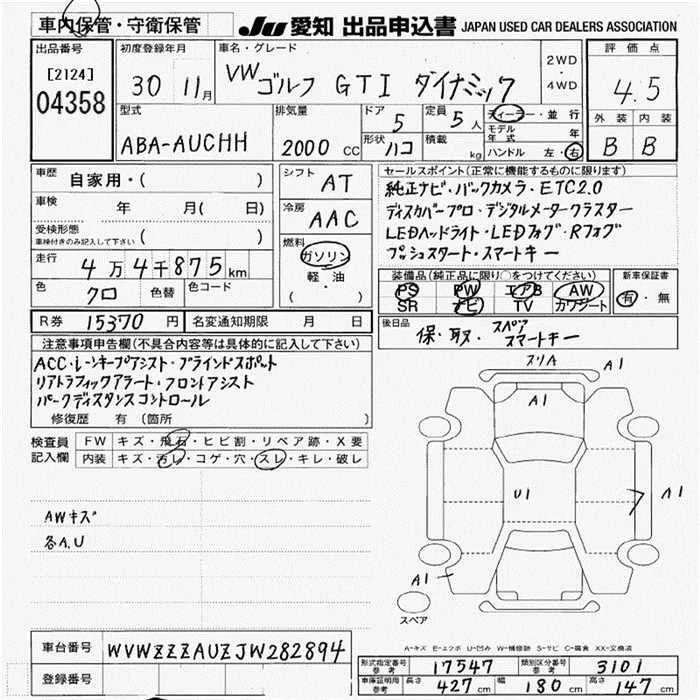 車内保管・守衛保管 JU 愛知 出品申込書 JAPAN USED CAR DEALERS ASSOCIATION
出品番号 初度登録年月 車名・グレード 評価点
[2124] 30 11月 VW ゴルフ GTI ダイナミック 2WD・4WD 4.5
04358
型式 排気量 ドア 定員 ディーラー・並行 外装 内装
ABA-AUCHH 2000 CC 5 5人 モデル年式 年 B B
形状 ハコ 積載 kg ハンドル 左・右
車歴 自家用・( ) シフト AT セールスポイント(正常に機能するものに限ります)
純正ナビ・バックカメラ・ETC2.0
車検 年 月( 日) 冷房 AAC ディスカバープロ・デジタルメータークラスター
受検形態 車検付きのみ記入して下さい ( ) LEDヘッドライト・LEDフォグ・Rフォグ
燃料 ガソリン プッシュスタート・スマートキー
走行 4万4千875km 軽・油 装備品(純正品に限り○をつけてください) 新車保証書
( ) PS PW エアB AW 有・無
色 クロ 色替 色コード SR ナビ TV カワシート
R券 15370円 名変通知期限 月 日 後日品 保・取・スペアスマートキー
注意事項申告欄(不具合内容等は具体的に記入して下さい)
ACC・レーンキープアシスト・ブラインドスポット
リアトラフィックアラート・フロントアシスト
パークディスタンスコントロール
修復歴 有 (箇所 )
スリA A1
A1
検査員記入欄 FW キズ・飛石・ヒビ割・リペア跡・X要
内装 キズ・汚レ・コゲ・穴・スレ・キレ・破レ
U1 A1
AWキズ
各A.U
A1
スペア
A-キズ E-エクボ U-凹み W-補修跡 S-サビ C-腐食 XX-交換済
車台番号 WVWZZZAUZJW282894
形式指定番号 参考 17547 類別区分番号 参考 3101
登録番号
車庫証明用 参考 長さ 427cm 幅 180cm 高さ 147cm